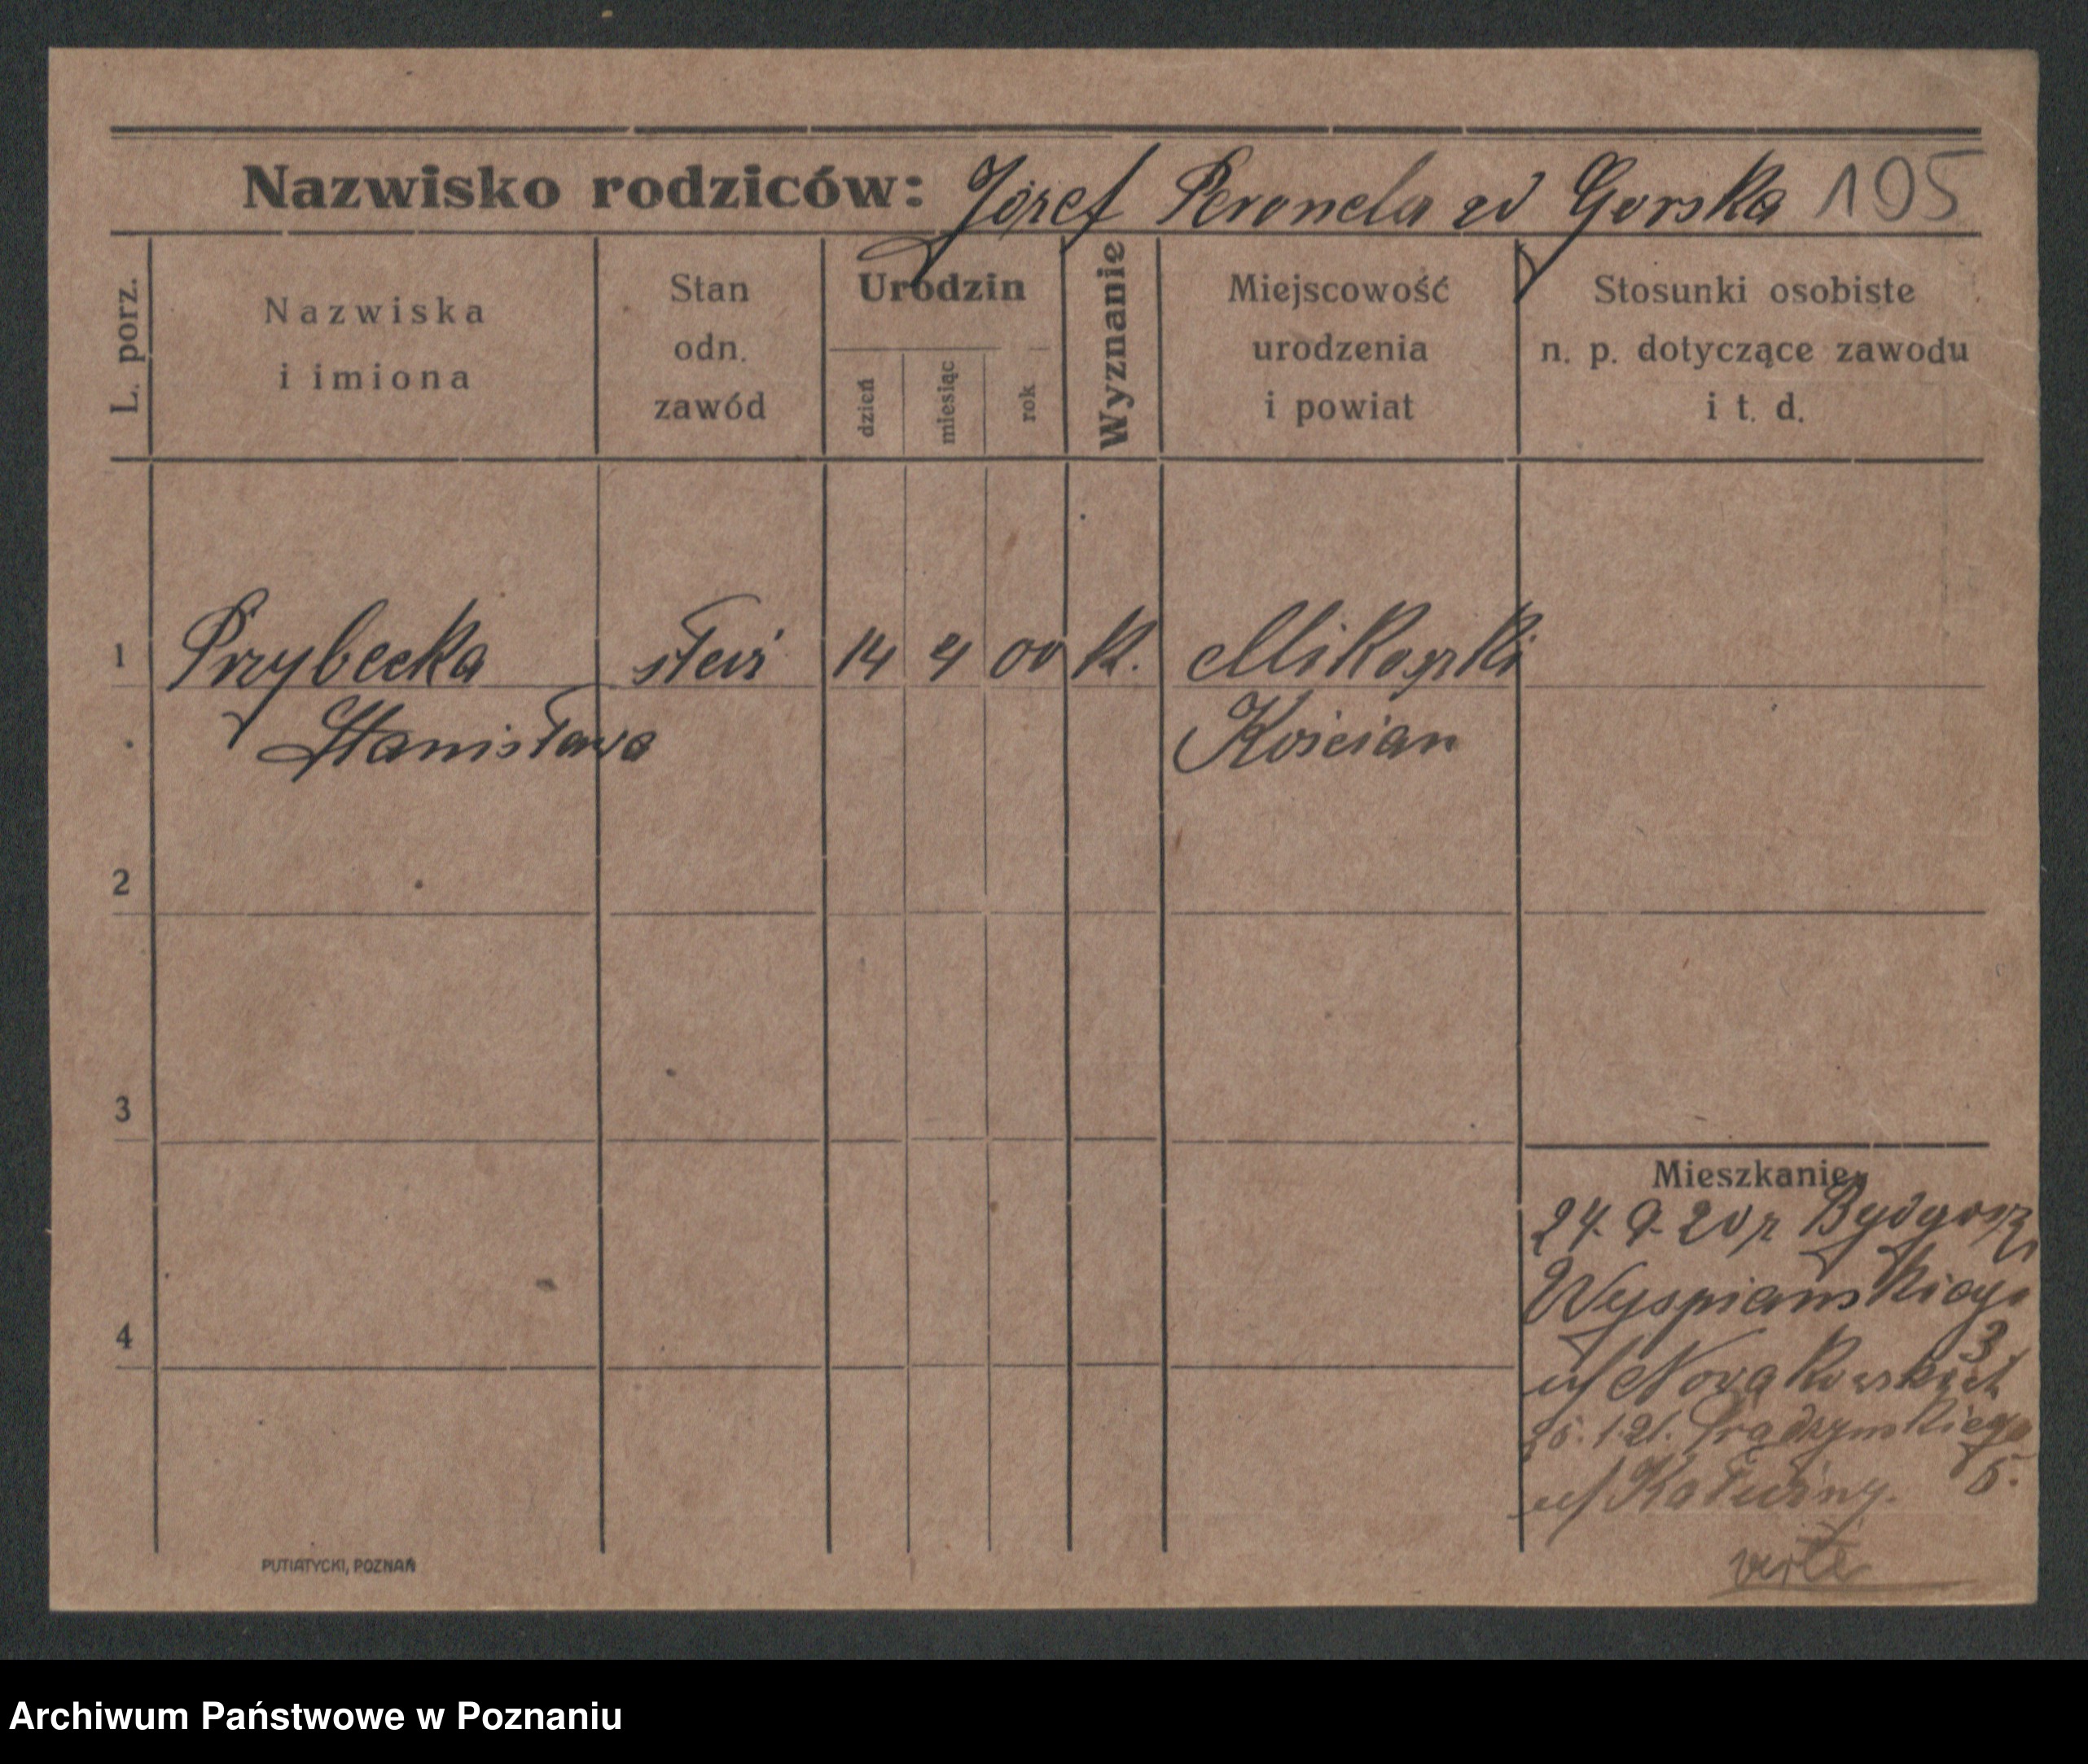 Nazwisko rodziców: Józef Peronela zd Gorska 195
L. porz.
Nazwiska
i imiona
Stan
odn.
zawód
Urodzin
dzień
miesiąc
rok
Wyznanie
Miejscowość
urodzenia
i powiat
Stosunki osobiste
n. p. dotyczące zawodu
i t. d.
1 Przybecka 14 4 00 k. Mikoszki
Stanisława Kościan
2
3
Mieszkanie
24. 9. 20 z Bydgoszcz
Wyspiańskiego
3
4
u/ Nowakowskich
25. 1. 21. Prądzyńskiego
5.
u/
verte
PUTIATYCKI, POZNAŃ
Archiwum Państwowe w Poznaniu